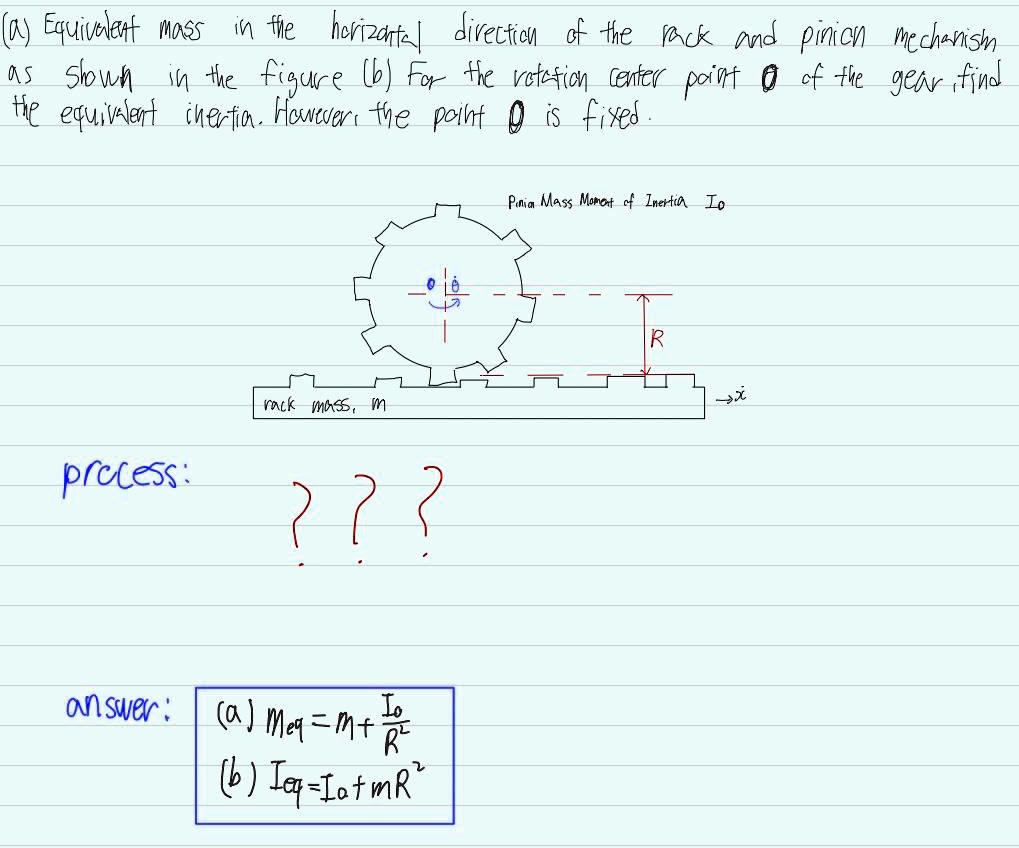 (a) Equivalent mass in the horizontal direction of the rack and pinion mechanism
as shown in the figure (b) For the rotation center point O of the gear, find
the equivalent inertia. However, the point O is fixed.
Pinion Mass Moment of Inertia I₀
O θ̇
R
rack mass, m
→ẋ
process:
? ? ?
answer:
(a) m_eq = m + I₀/R²
(b) I_eq = I₀ + mR²